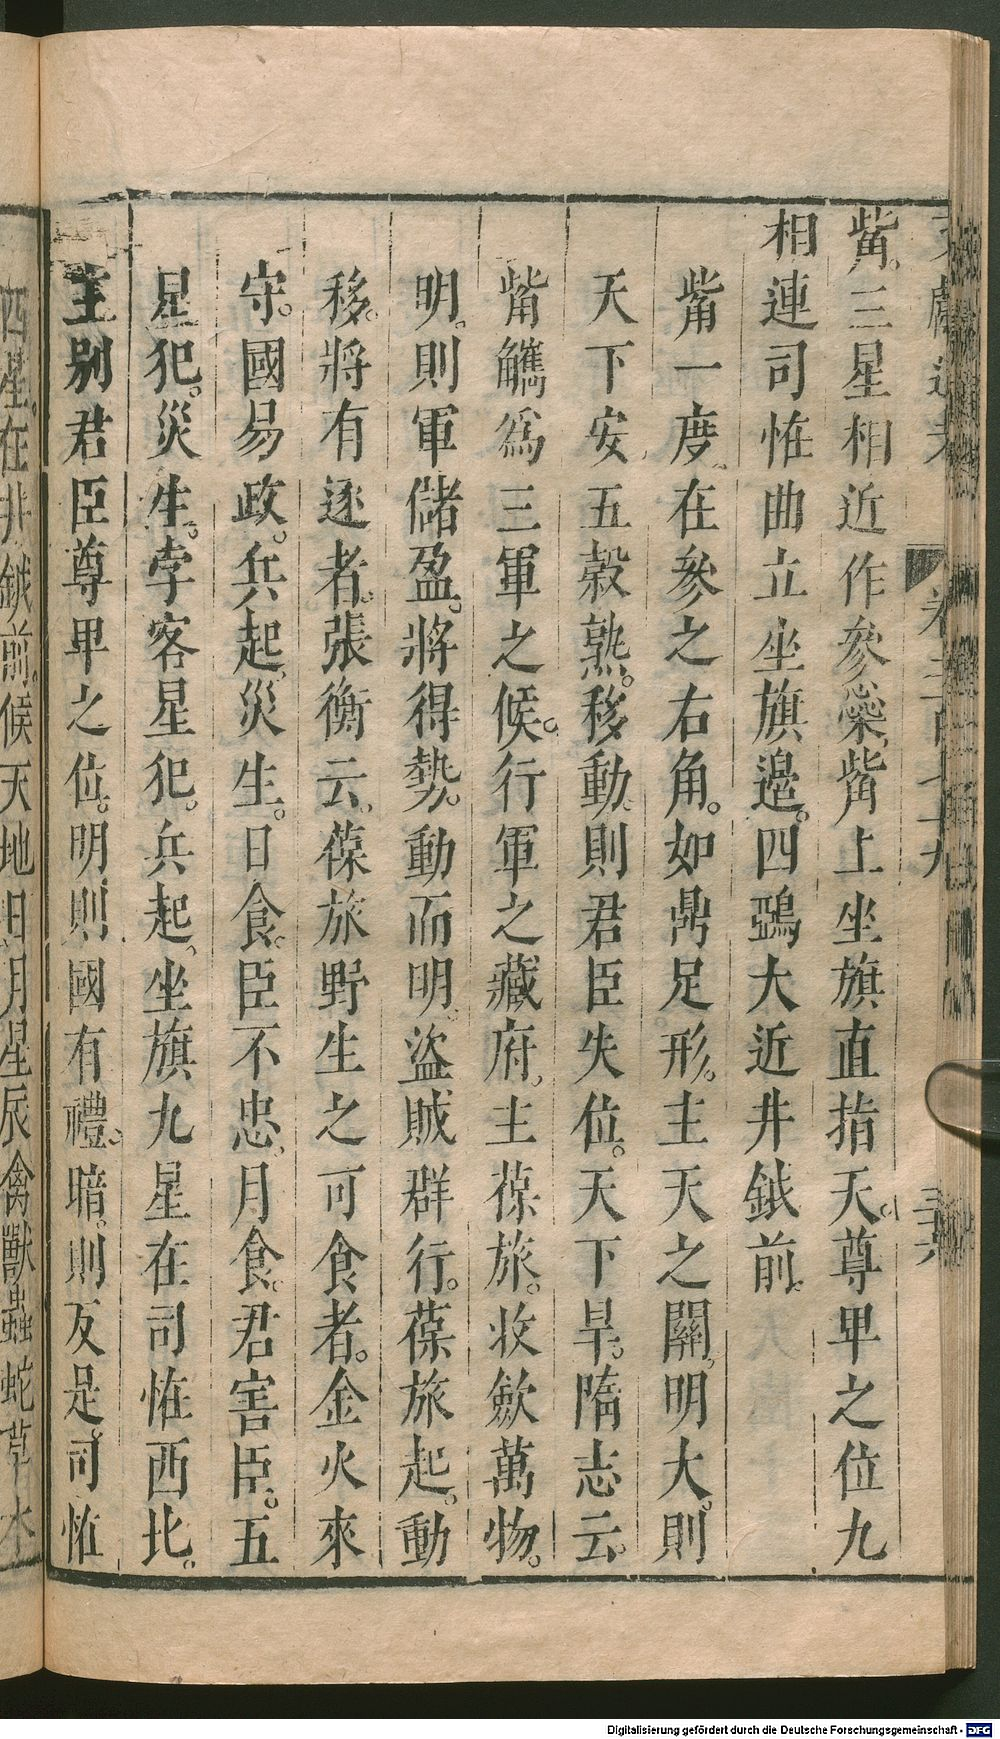 觜。三星相近作參蘂。觜上坐旗直指天。尊卑之位九
相連司恠曲立坐旗邊。四鵶大近井鉞前。
觜一度。在參之右角。如鼎足形。主天之關。明大。則
天下安五穀熟。移動。則君臣失位。天下旱。隋志云。
觜觿爲三軍之候。行軍之藏府。主葆旅。收斂萬物。
明。則軍儲盈。將得勢。動而明。盜賊群行。葆旅起。動
移。將有逐者。張衡云。葆旅野生之可食者。金火來
守。國易政。兵起。災生。日食。臣不忠。月食。君害臣。五
星犯。災生。孛客星犯。兵起。坐旗九星在司恠西北。
主別君臣尊卑之位。明。則國有禮。暗。則反是。司恠
四星。在井鉞前。候天地日月星辰禽獸蟲蛇草木
卷二百七十九
三六
Digitalisierung gefördert durch die Deutsche Forschungsgemeinschaft - DFG